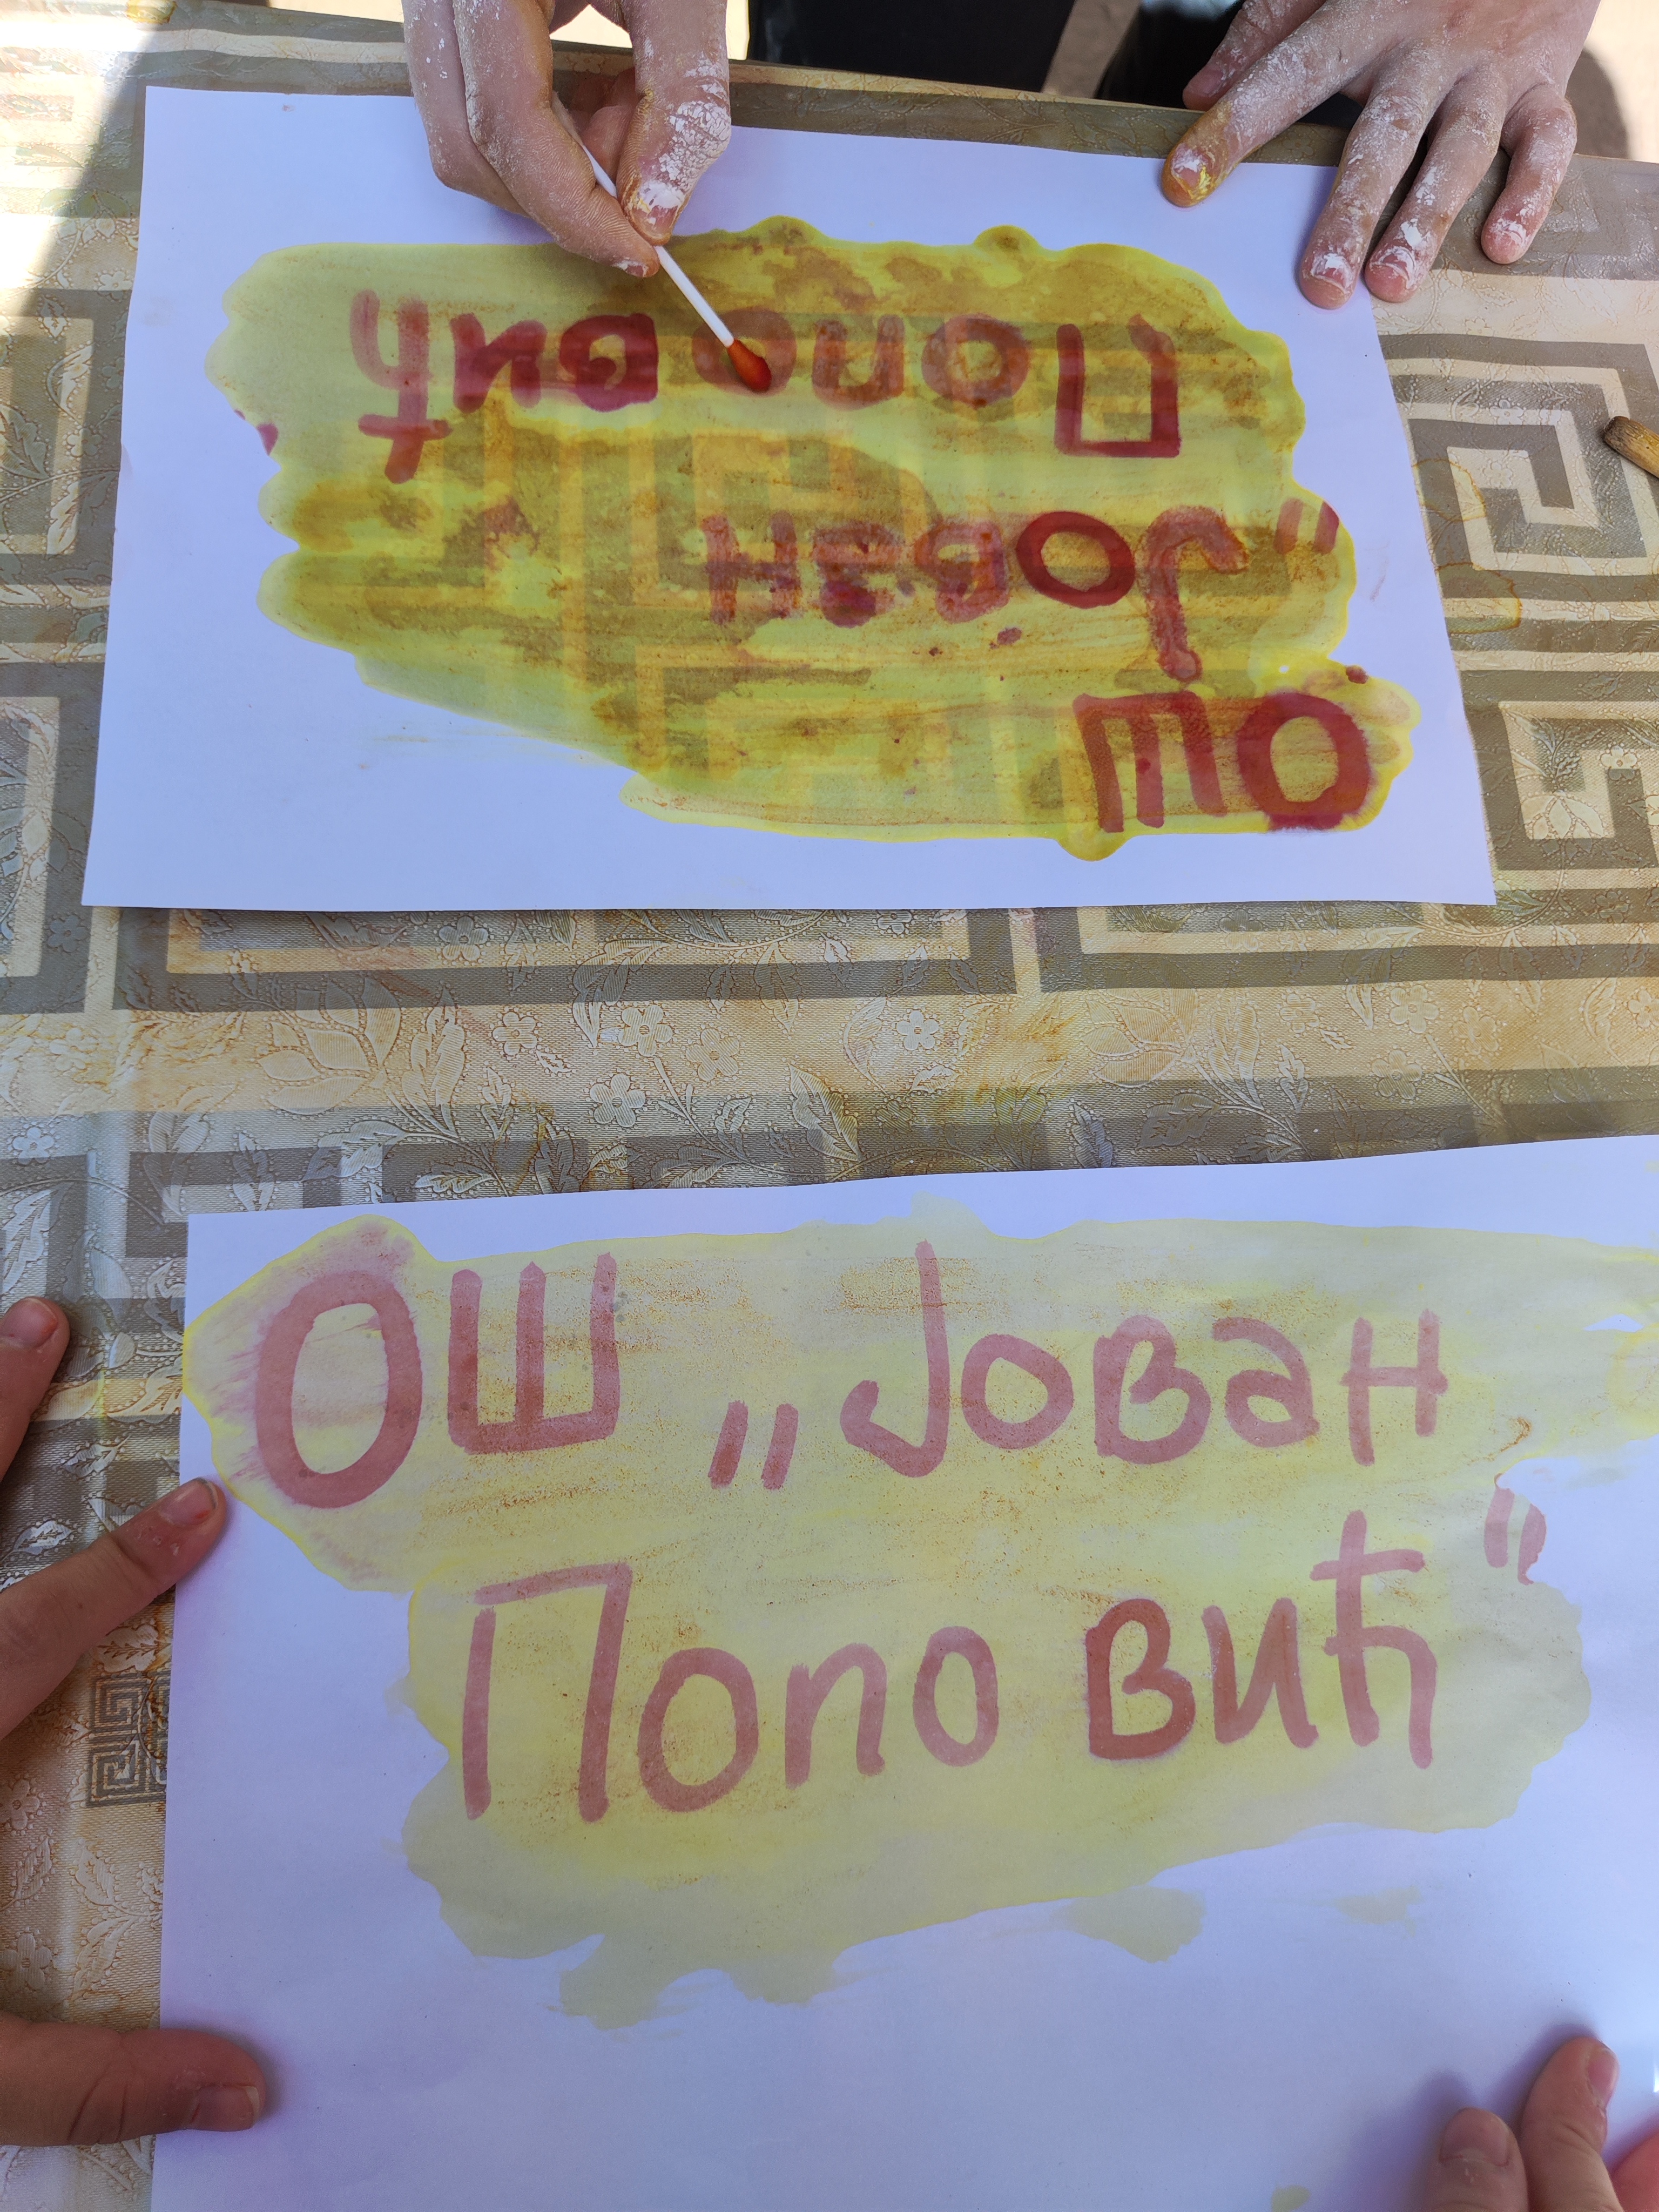 ОШ
„Јован
Поповић
ОШ „Јован
Поповић“